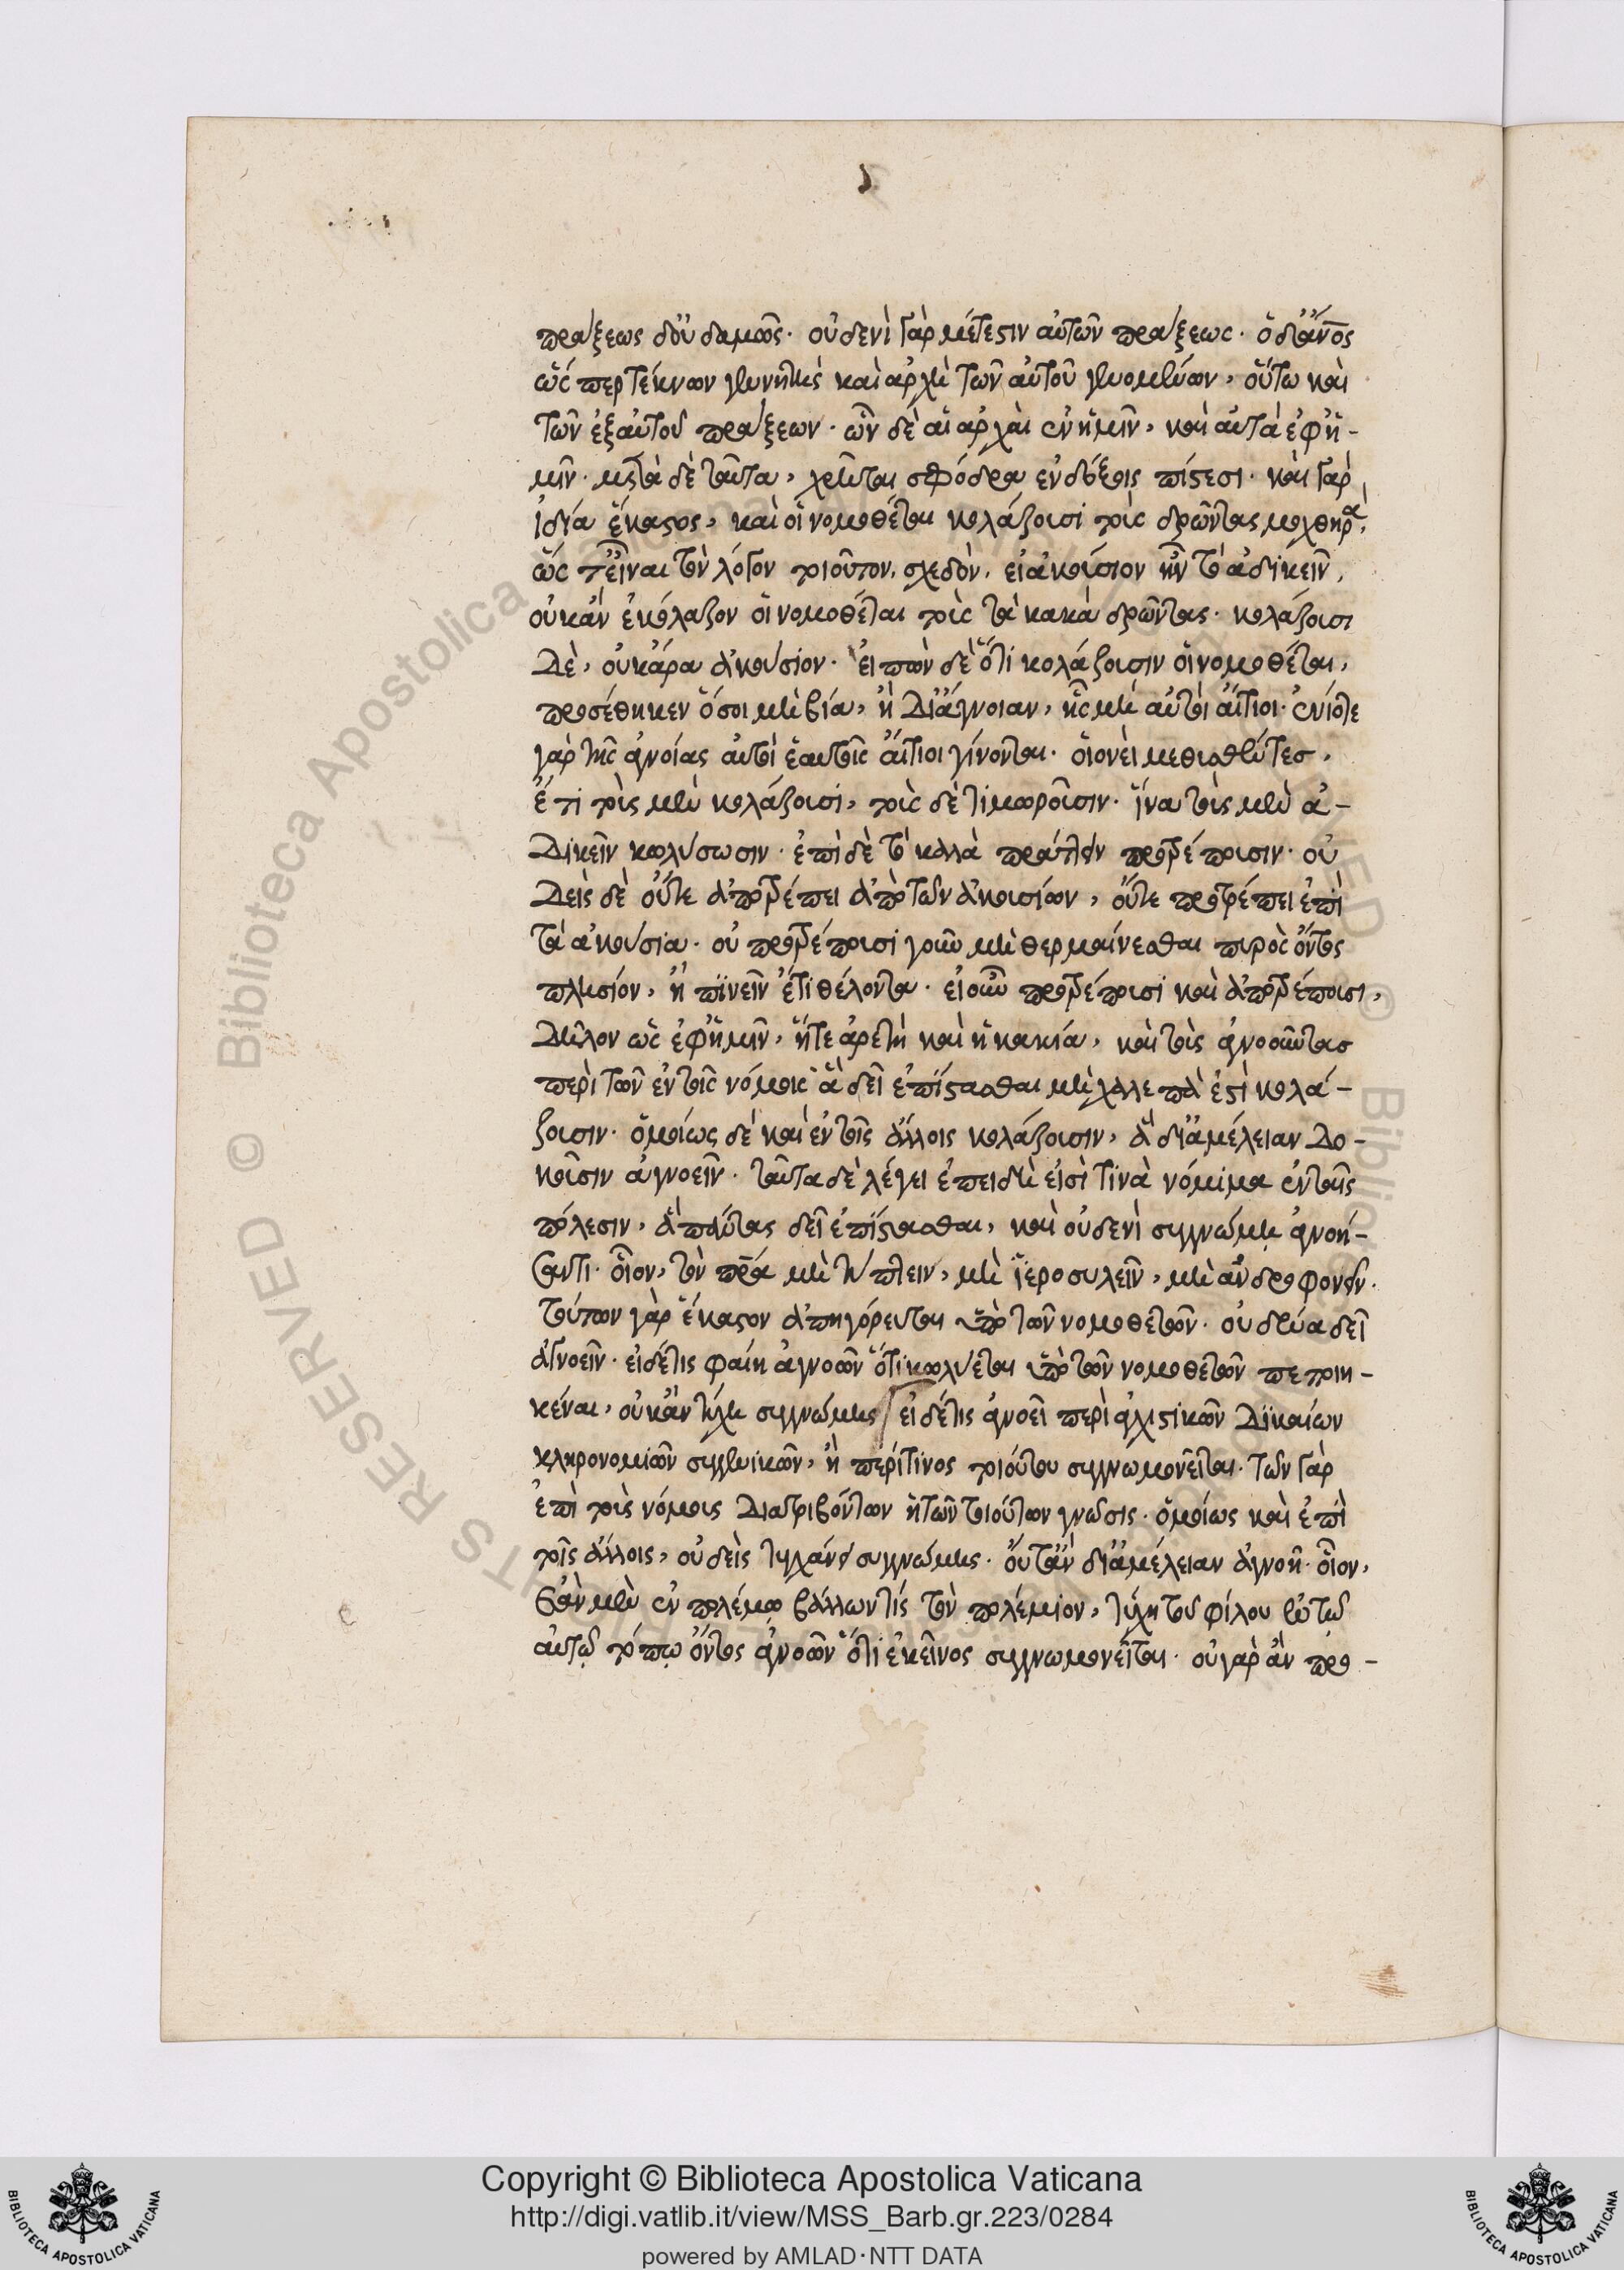 πράξεως δ' οὐδαμῶς. οὐδενὶ γὰρ μέτεστιν αὐτῶν πράξεως. ὁ δ' ἄνος
ὥσπερ τέκνων γεννητὴς καὶ ἀρχὴ τῶν αὐτοῦ γενομένων, οὕτω καὶ
τῶν ἐξ αὐτοῦ πράξεων. ὧν δὲ αἱ ἀρχαὶ ἐν ἡμῖν, καὶ αὐτὰ ἐφ' ἡ-
μῖν. μετὰ δὲ ταῦτα, χρῆται σφόδρα ἐνδόξοις πίστεσι. καὶ γὰρ
ἰδία ἕκαστος, καὶ οἱ νομοθέται κολάζουσι τοὺς δρῶντας μοχθηρὰ,
ὥς τ' εἶναι τὸν λόγον τοιοῦτον, σχεδὸν, εἰ ἀκούσιον ἦν τὸ ἀδικεῖν,
οὐκ ἂν ἐκόλαζον οἱ νομοθέται τοὺς τὰ κακὰ δρῶντας. κολάζουσι
δὲ, οὐκ ἄρα ἀκούσιον. εἰπὼν δὲ ὅτι κολάζουσιν οἱ νομοθέται,
προσέθηκεν ὅσοι μὴ βία, ἢ δι' ἄγνοιαν, ἧς μὴ αὐτοὶ αἴτιοι. ἐνίοτε
γὰρ τῆς ἀγνοίας αὐτοὶ ἑαυτοῖς αἴτιοι γίνονται. οἱονεὶ μεθυσθέντες.
ἔτι τοὺς μὲν κολάζουσι, τοὺς δὲ τιμωροῦσιν. ἵνα τοὺς μὲν ἀ-
δικεῖν κωλύσωσιν. ἐπὶ δὲ τὸ καλὰ πράττειν προτρέπουσιν. οὐ
δεὶς δὲ οὔτε ἀποτρέπει ἀπὸ τῶν ἀκουσίων, οὔτε προτρέπει ἐπὶ
τὰ ἀκούσια. οὐ προτρέπουσι γοῦν μὴ θερμαίνεσθαι πυρὸς ὄντος
πλησίον, ἢ πίνειν ἔτι θέλοντα. εἰ οὖν προτρέπουσι καὶ ἀποτρέπουσι,
δῆλον ὡς ἐφ' ἡμῖν, ἥτε ἀρετὴ καὶ ἡ κακία, καὶ τοὺς ἀγνοοῦντας
περὶ τῶν ἐν τοῖς νόμοις ἃ δεῖ ἐπίστασθαι μὴ χαλεπὰ ἐστὶ κολά-
ζουσιν. ὁμοίως δὲ καὶ ἐν τοῖς ἄλλοις κολάζουσιν, ἃ δι' ἀμέλειαν δο-
κοῦσιν ἀγνοεῖν. ταῦτα δὲ λέγει ἐπειδὴ εἰσὶ τινὰ νόμιμα ἐν ταῖς
πόλεσιν, ἃ πάντας δεῖ ἐπίστασθαι, καὶ οὐδενὶ συγγνώμη ἀγνοή-
σαντι. οἷον, τὸν πρα μὴ τύπτειν, μὴ ἱεροσυλεῖν, μὴ ἀνδροφονεῖν.
τούτων γὰρ ἕκαστον ἀπηγόρευται ὑπὸ τῶν νομοθετῶν. οὐδένα δεῖ
ἀγνοεῖν. εἰ δέ τις φαίη ἀγνοῶν ὅτι κωλύεται ὑπὸ τῶν νομοθετῶν πεποιη-
κέναι, οὐκ ἂν τύχη συγγνώμης εἰ δέ τις ἀγνοεῖ περὶ ἀγχιστικῶν δικαίων
κληρονομιῶν συγγενικῶν, ἢ περί τινος τοιούτου συγγνωμονεῖται. τῶν γὰρ
ἐπὶ τοὺς νόμους διατριβόντων ἡ τῶν τοιούτων γνῶσις. ὁμοίως καὶ ἐπὶ
τοῖς ἄλλοις, οὐδεὶς τυγχάνει συγγνώμης. ὅταν δι' ἀμέλειαν ἀγνοῇ. οἷον,
ἐὰν μὲν ἐν πολέμω βάλλων τίς τὸν πολέμιον, τύχη τοῦ φίλου ἐν τῷ
αὐτῷ τόπῳ ὄντος ἀγνοῶν ὅτι ἐκεῖνος συγγνωμονεῖται. οὐ γὰρ ἂν προ-
Copyright © Biblioteca Apostolica Vaticana
http://digi.vatlib.it/view/MSS_Barb.gr.223/0284
powered by AMLAD·NTT DATA
BIBLIOTECA APOSTOLICA VATICANA
BIBLIOTECA APOSTOLICA VATICANA